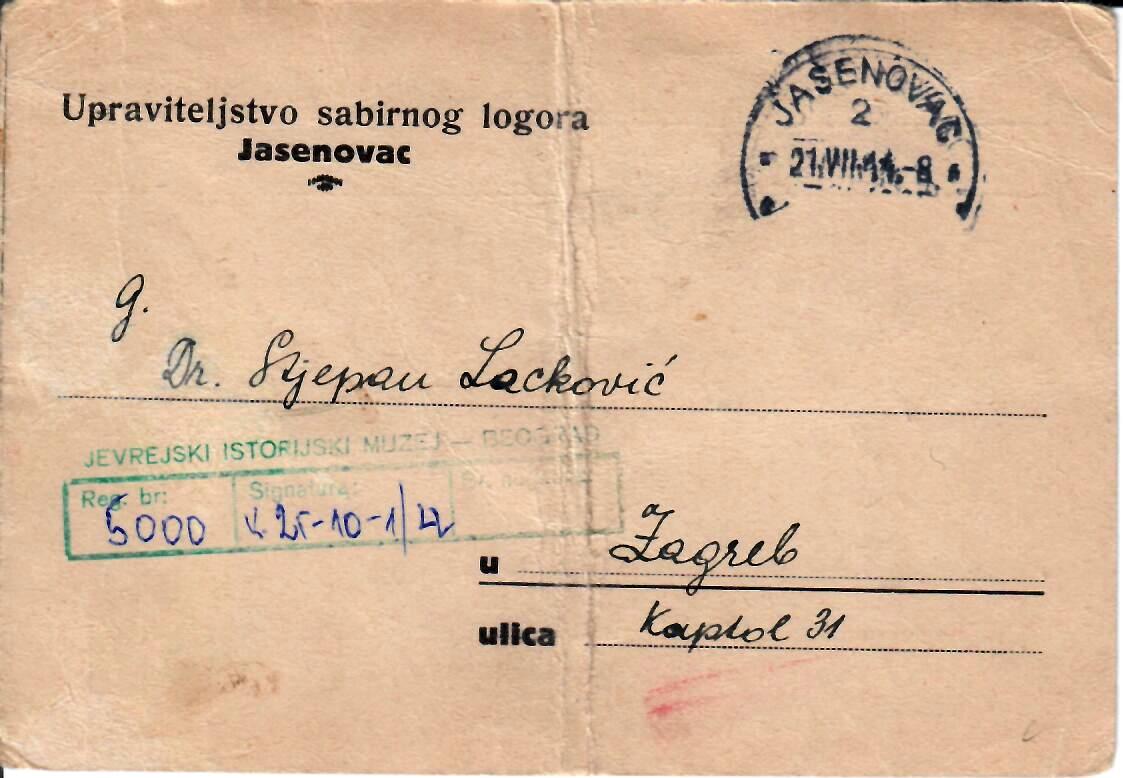 Upraviteljstvo sabirnog logora
Jasenovac
JASENOVAC
2
21.VII.44.-8
g.
Dr. Stjepan Lacković
JEVREJSKI ISTORIJSKI MUZEJ — BEOGRAD
Reg. br: Signatura:
5000 25-10-1/22
u Zagreb
ulica Kaptol 31